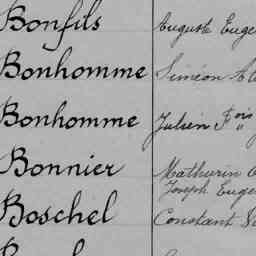 Bonfils Auguste Euge
Bonhomme Siméon
Bonhomme Julien Fois
Bonnier Mathurin
Joseph Euge
Boschel Constant